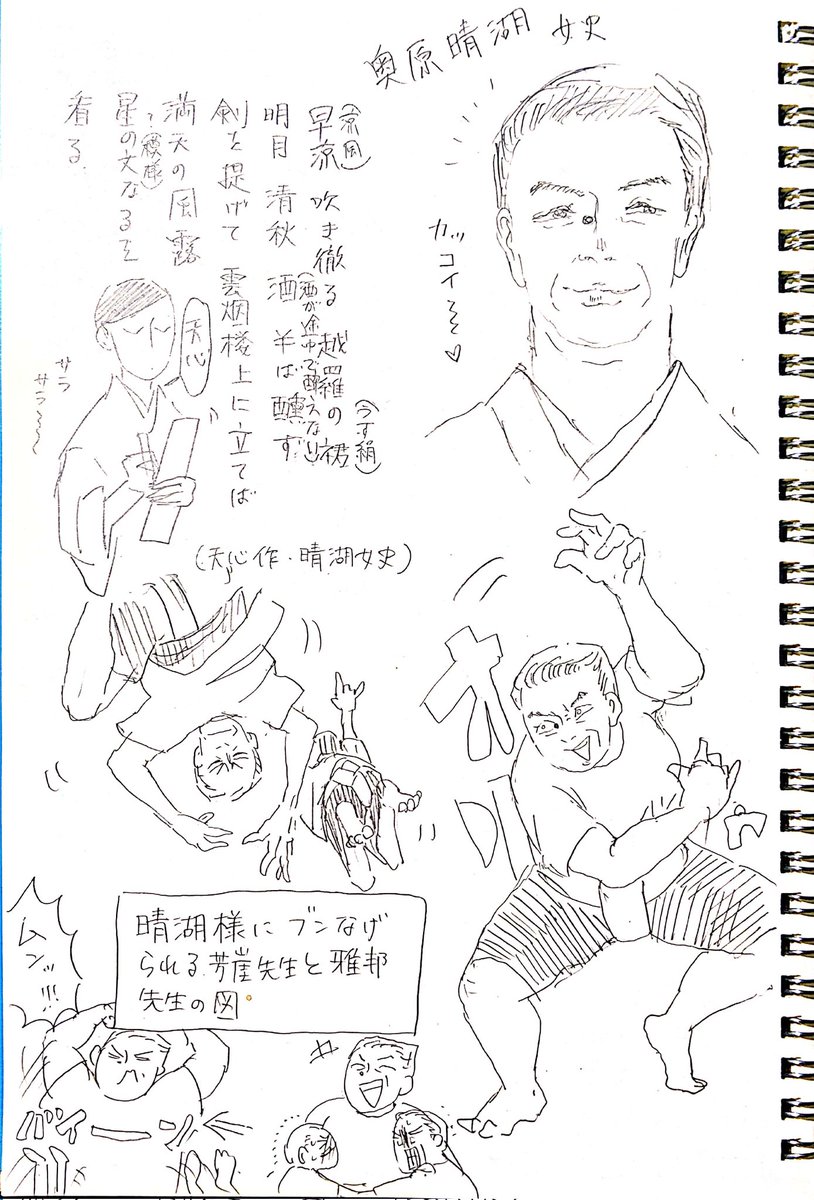 奥原晴湖 女史
カッコイ
(涼風)
早涼 吹き徹る 越羅の裙
(うす絹)
明月 清秋 酒 半ば醺ず
(酒が途中で醺えない)
剣を提げて 雲烟楼上に立てば
満天の風露
星の文なるを
看る.
天心
サラ
サラ〜〜
(天心作・晴湖女史)
晴湖様に ブンなげ
られる芳崖先生と雅邦
先生の図。
ムンッ!!!
バァーン